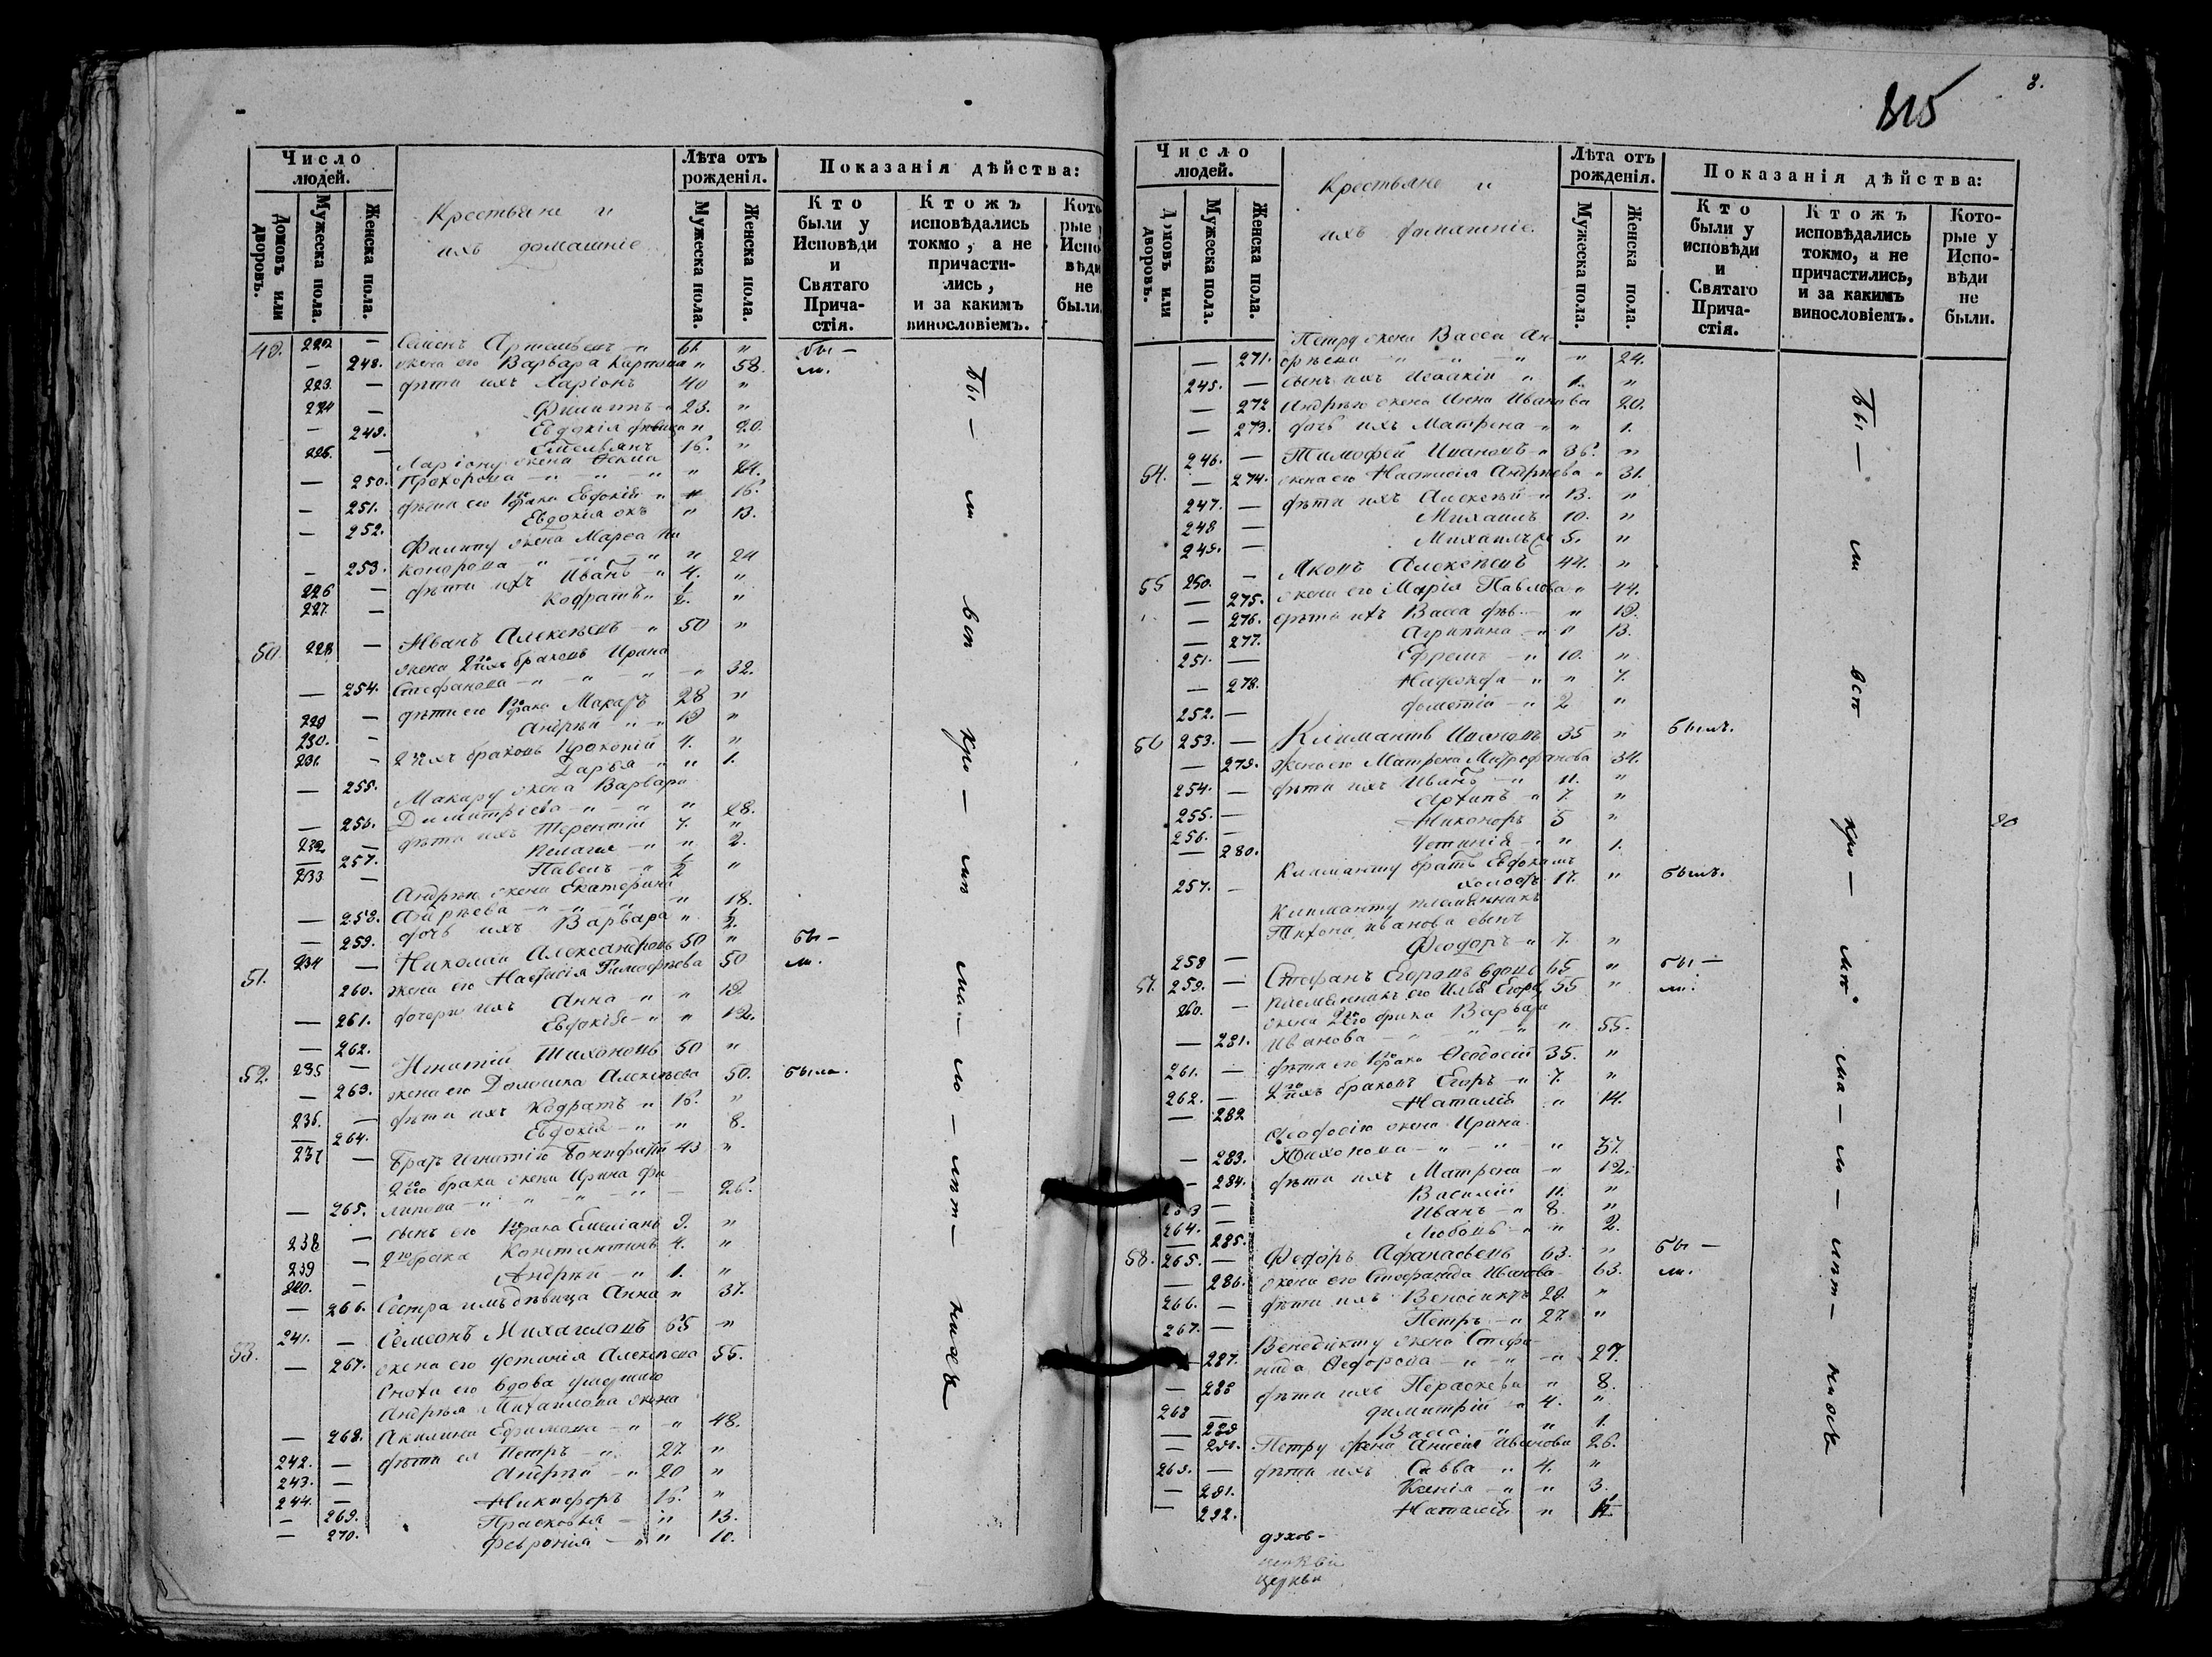 Число людей.
Домовъ или дворовъ.
Мужеска пола.
Женска пола.
Крестьяне и
ихъ домашніе
Лѣта отъ рожденія.
Мужеска пола.
Женска пола.
Показанія дѣйства:
Кто были у Исповѣди и Святаго Прича-стія.
Ктожъ исповѣдались токмо, а не причасти-лись, и за какимъ винословіемъ.
Кото-рые у Испо-вѣди не были.
222. — Семенъ Артемьевъ 61 " бы —
— 248. жена его Варвара Карпова " 58. ли.
223. — дѣти ихъ Ларіонъ 40 "
224 — Филиппъ 23. "
— 249. Евдокія дѣвица " 20.
225. — Емельянъ 16. "
Ларіону жена Ѳекла
— 250. Прохорова " 24.
— 251. дѣти его 1го брака Евдокія " 16.
— 252. Евдокія " 13.
Филиппу жена Марѳа Ни
— 253. конорова " 24
226 — дѣти ихъ Иванъ 4. "
227. — Кодратъ ½. "
50. 228 — Иванъ Алексѣевъ 50 "
жена 2мъ бракомъ Ирина
— 254. Стефанова " 32.
229 — дѣти его 1го брака Макаръ 28 "
230. — Андрѣй 19 "
231. — 2мъ бракомъ Прокопій 4. "
— 255. Дарья " 1.
Макару жена Варвара
— 256. Димитріева " 28.
232 — дѣти ихъ Терентій 7. "
— 257. Пелагея " 2.
233 — Павелъ ½ "
Андрѣю жена Екатерина
— 258. Андрѣева " 18.
— 259. дочь ихъ Варвара " ½.
51. 234 — Николай Александровъ 50 " бы —
260. жена его Настасія Тимоѳѣева 50 ли.
— 261. дочери ихъ Анна " 19.
— 262. Евдокія " 12.
52. 235 — Игнатій Тихоновъ 50 "
— 263. жена его Домника Алексѣева 50. были.
236. — дѣти ихъ Кодратъ 16. "
— 264. Евдокія " 8.
237 — Братъ Игнатію Бонифатій 43 "
2го брака жена Ирина Фи
— 265. липова — 26.
238 — сынъ его 1го брака Емеліанъ 9. "
239 — 2го брака Константинъ 4. "
240. — Андрѣй 1. "
— 266. Сестра имъ дѣвица Анна " 37.
53. 241. — Семеонъ Михайловъ 65 "
— 267. жена его Устинія Алексѣева 55.
Сноха его вдова умершаго
Андрея Михайлова жена
— 268. Акилина Ефимова " 48.
242. — дѣти ея Петръ 27. "
243. — Андрѣй 20 "
244. — Никифоръ 16. "
— 269. Прасковья " 13.
— 270. Февронія " 10.
Бы — ли всѣ кро — мѣ ма — ло — лѣт — нихъ
8.
Число людей.
Домовъ или дворовъ.
Мужеска пола.
Женска пола.
Крестьяне и
ихъ домашніе.
Лѣта отъ рожденія.
Мужеска пола.
Женска пола.
Показанія дѣйства:
Кто были у исповѣди и Святаго Прича-стія.
Ктожъ исповѣдались токмо, а не причастились, и за какимъ винословіемъ.
Кото-рые у Испо-вѣди не были.
Петру жена Васса Ан-
— 271. дрѣева " 24.
245. — сынъ ихъ Исаакій 1. "
— 272 Андрѣю жена Анна Иванова 20.
— 273. дочь ихъ Матрена " 1.
54. 246. — Тимофей Ивановъ 36. "
— 274. жена его Настасія Андрѣева " 31.
247. — дѣти ихъ Алексѣй 13. "
248 — Михаилъ 10. "
249. — Михаилъ 5. "
55 250. — Яковъ Алексѣевъ 44. "
— 275. жена его Марія Павлова " 44.
— 276. дѣти ихъ Васса дѣв. " 19.
— 277. Агрипина " 13.
251. — Ефремъ 10. "
— 278. Надежда " 7.
252. — Дометій 2 "
56 253. — Климантъ Ивановъ 35 " былъ.
— 279. Жена его Матрена Митрофанова 34.
254. — дѣти ихъ Иванъ 11. "
255. — Архипъ 7. "
256. — Никоноръ 5 "
— 280. Устинія " 1.
Климанту братъ Евдокимъ
257. — холостъ 17. " былъ.
Климанту племянникъ
Тихона Иванова сынъ
258 — Ѳеодоръ 7. "
57. 259. — Стефанъ Егоровъ вдовъ 65 " бы —
260. — племянникъ его Илья Егоровъ 55 " ли.
жена 2го брака Варвара
— 281. Иванова " 55.
261. — дѣти его 1го брака Ѳеодосій 35. "
262. — 2мъ бракомъ Егоръ 7. "
— 282 Наталія " 14.
Ѳеодосію жена Ирина
— 283. Тихонова " 37.
— 284. дѣти ихъ Матрена " 12.
263 — Василій 11. "
264. — Иванъ 8. "
— 285. Любовь " 2.
58. 265. — Федоръ Афанасьевъ 63. " бы —
— 286. жена его Стефанида Иванова 63. ли.
266. — дѣти ихъ Венедиктъ 29. "
267. — Петръ 27 "
Венедикту жена Стефа-
— 287. нида Ѳедорова " 27.
— 288 дѣти ихъ Параскева " 8.
268 — Димитрій 4. "
— 289 Васса " 1.
— 290. Петру жена Анисія Иванова 26.
269. — дѣти ихъ Савва 4. "
— 291. Ксенія " 3.
— 292. Наталія "
Бы — ли всѣ кро — мѣ ма — ло — лѣт — нихъ
20
духов-
церкви